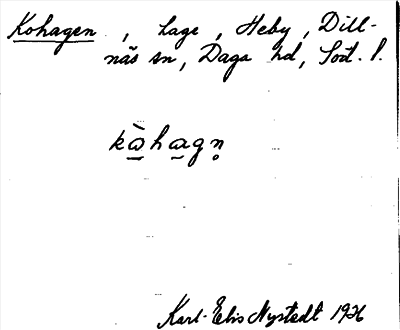 Kohagen , Lage , Heby , Dill-
näs sn, Daga hd, Söd. l.
kò̱ha̱gn̥
Karl-Elis Nystedt 1926